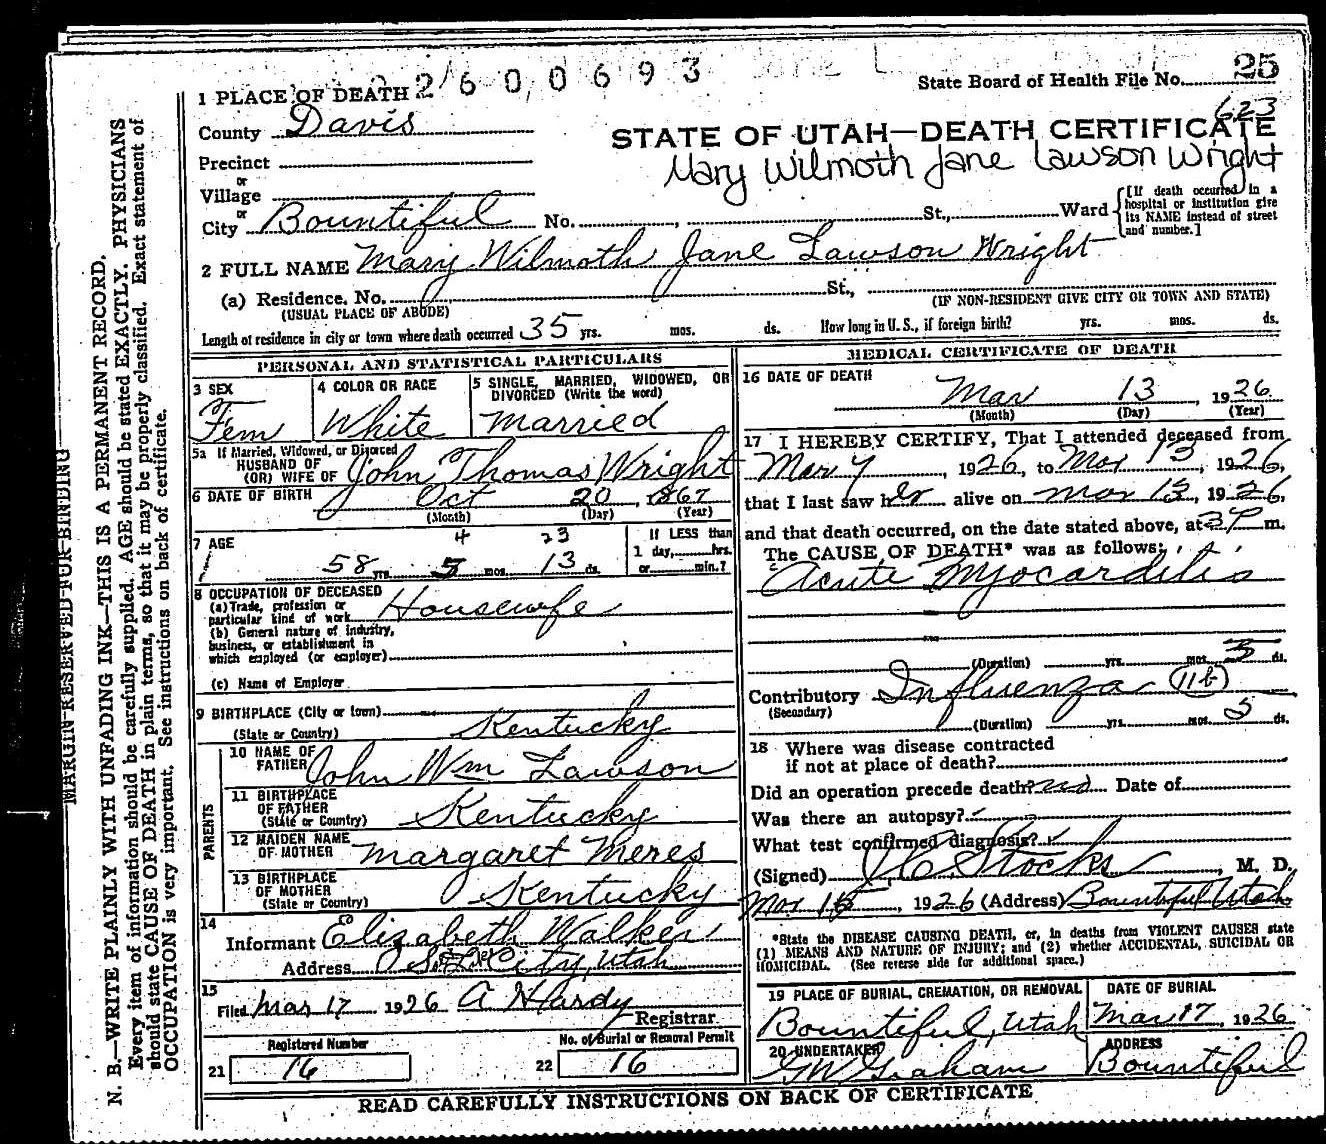 2600693
State Board of Health File No. 25
623
1 PLACE OF DEATH
County Davis
STATE OF UTAH—DEATH CERTIFICATE
Mary Wilmoth Jane Lawson Wright
Precinct
or
Village
or
City Bountiful No. , St., Ward
[If death occurred in a
hospital or institution give
its NAME instead of street
and number.]
2 FULL NAME Mary Wilmoth Jane Lawson Wright
(a) Residence. No. St.,
(USUAL PLACE OF ABODE) (IF NON-RESIDENT GIVE CITY OR TOWN AND STATE)
Length of residence in city or town where death occurred 35 yrs. mos. ds. How long in U. S., if foreign birth? yrs. mos. ds.
PERSONAL AND STATISTICAL PARTICULARS
3 SEX
Fem
4 COLOR OR RACE
White
5 SINGLE, MARRIED, WIDOWED, OR
DIVORCED (Write the word)
Married
5a If Married, Widowed, or Divorced
HUSBAND OF
(OR) WIFE OF John Thomas Wright
6 DATE OF BIRTH Oct 20, 1867
(Month) (Day) (Year)
7 AGE
4 23
58 yrs. 5 mos. 13 ds.
If LESS than
1 day, hrs.
or min.?
8 OCCUPATION OF DECEASED
(a) Trade, profession or
particular kind of work Housewife
(b) General nature of industry,
business, or establishment in
which employed (or employer)
(c) Name of Employer
9 BIRTHPLACE (City or town)
(State or Country) Kentucky
PARENTS
10 NAME OF
FATHER John Wm Lawson
11 BIRTHPLACE
OF FATHER
(State or Country) Kentucky
12 MAIDEN NAME
OF MOTHER Margaret Meres
13 BIRTHPLACE
OF MOTHER
(State or Country) Kentucky
14
Informant Elizabeth Walker
Address City, Utah
15
Filed Mar 17 1926 A Hardy
Registrar
Registered Number
21 16
No. of Burial or Removal Permit
22 16
MEDICAL CERTIFICATE OF DEATH
16 DATE OF DEATH
Mar 13, 1926
(Month) (Day) (Year)
17 I HEREBY CERTIFY, That I attended deceased from
Mar 7, 1926, to Mar 13, 1926,
that I last saw her alive on Mar 13, 1926,
and that death occurred, on the date stated above, at 3P m.
The CAUSE OF DEATH* was as follows:
Acute Myocarditis
(Duration) yrs. mos. 5 ds.
Contributory Influenza 11b
(Secondary)
(Duration) yrs. mos. 5 ds.
18 Where was disease contracted
if not at place of death?
Did an operation precede death? no Date of
Was there an autopsy?
What test confirmed diagnosis?
(Signed) J C Stocks, M. D.
Mar 15, 1926 (Address) Bountiful Utah
*State the DISEASE CAUSING DEATH, or, in deaths from VIOLENT CAUSES state
(1) MEANS AND NATURE OF INJURY; and (2) whether ACCIDENTAL, SUICIDAL OR
HOMICIDAL. (See reverse side for additional space.)
19 PLACE OF BURIAL, CREMATION, OR REMOVAL
Bountiful, Utah
DATE OF BURIAL
Mar 17, 1926
20 UNDERTAKER
GW Graham
ADDRESS
Bountiful
READ CAREFULLY INSTRUCTIONS ON BACK OF CERTIFICATE
MARGIN RESERVED FOR BINDING
N. B.—WRITE PLAINLY WITH UNFADING INK—THIS IS A PERMANENT RECORD.
Every item of information should be carefully supplied. AGE should be stated EXACTLY. PHYSICIANS
should state CAUSE OF DEATH in plain terms, so that it may be properly classified. Exact statement of
OCCUPATION is very important. See instructions on back of certificate.